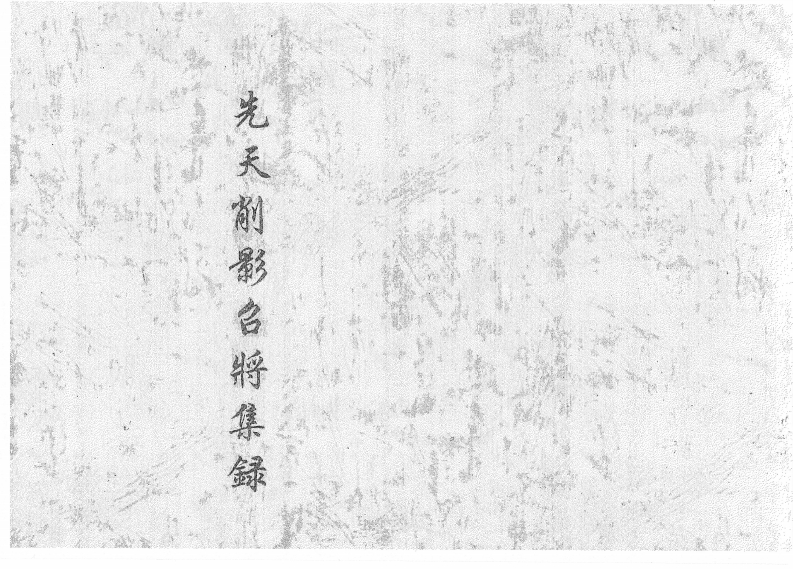 先天削影召將集録